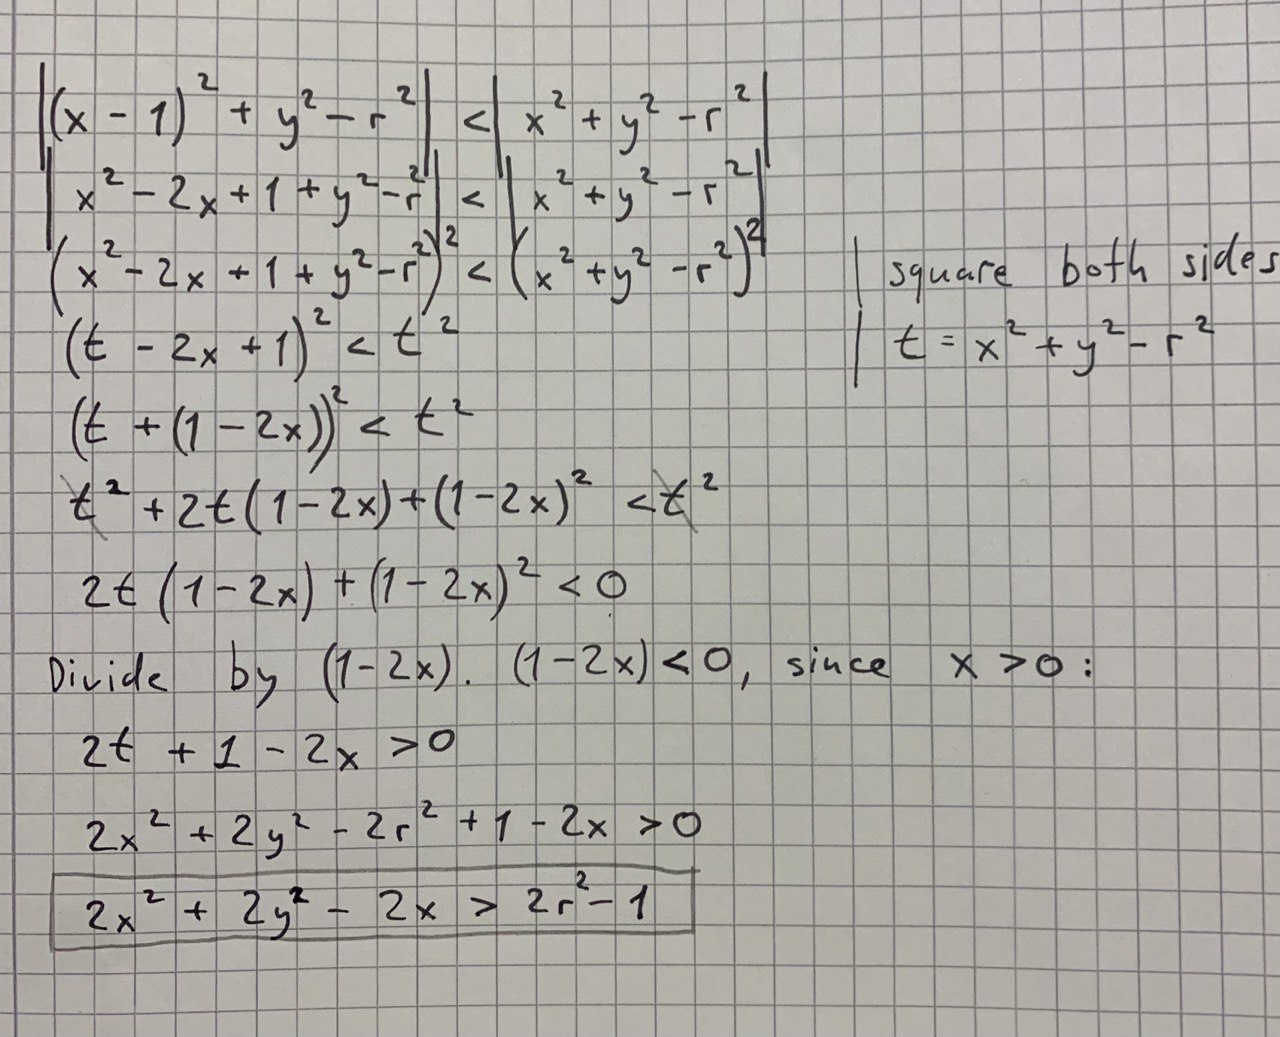 |(x - 1)² + y² - r²| < |x² + y² - r²|
|x² - 2x + 1 + y² - r²| < |x² + y² - r²|
(x² - 2x + 1 + y² - r²)² < (x² + y² - r²)² | square both sides
(t - 2x + 1)² < t² | t = x² + y² - r²
(t + (1 - 2x))² < t²
t² + 2t(1 - 2x) + (1 - 2x)² < t²
2t (1 - 2x) + (1 - 2x)² < 0
Divide by (1 - 2x). (1 - 2x) < 0, since x > 0:
2t + 1 - 2x > 0
2x² + 2y² - 2r² + 1 - 2x > 0
2x² + 2y² - 2x > 2r² - 1